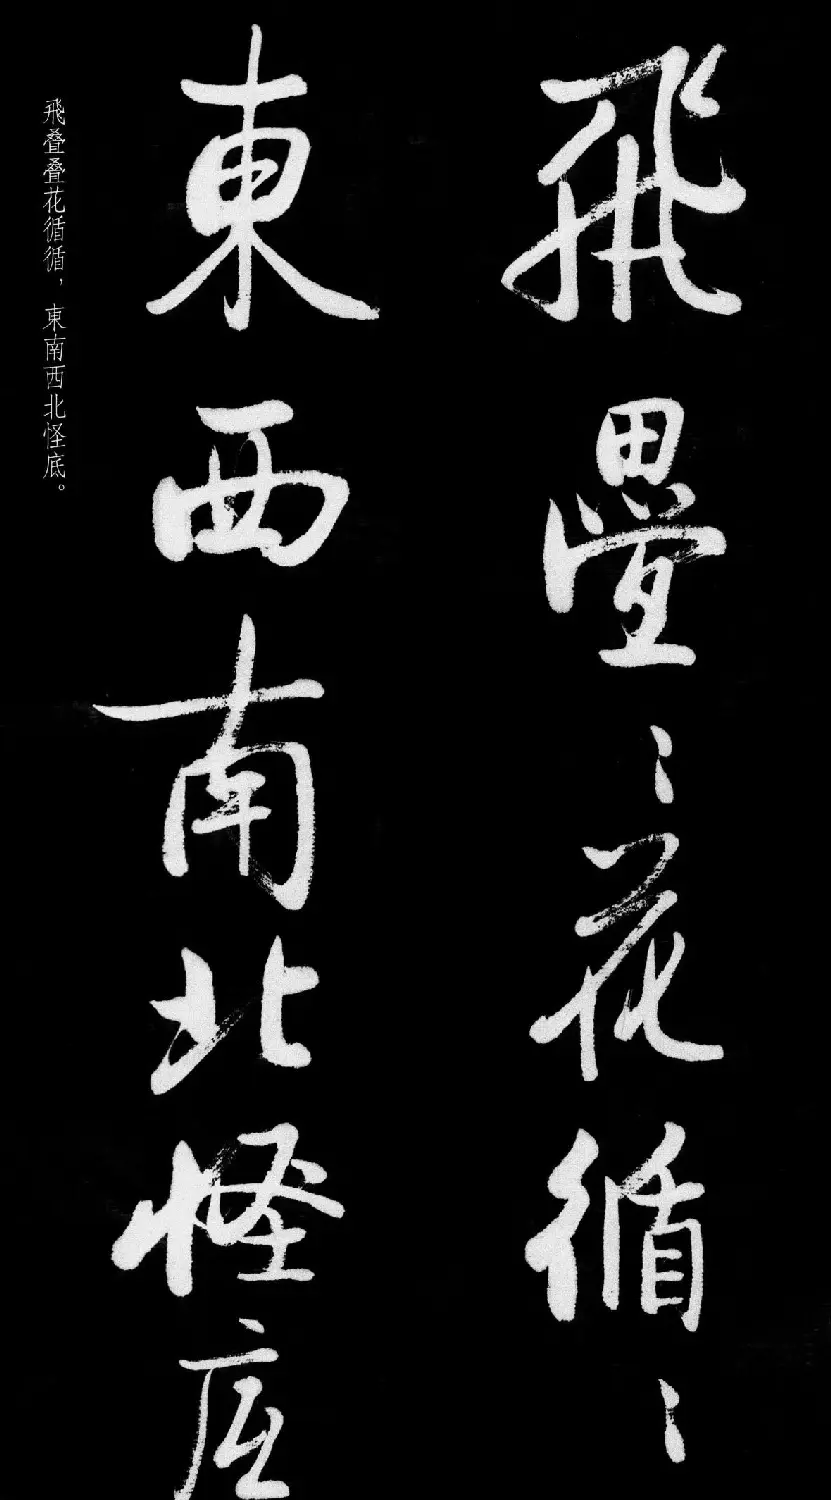 飛疊〻花循〻
東西南北怪底
飛叠叠花循循，東南西北怪底。